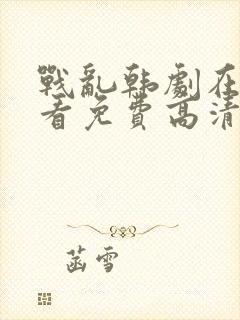 戰亂韩劇在
看免費高清
菡雪